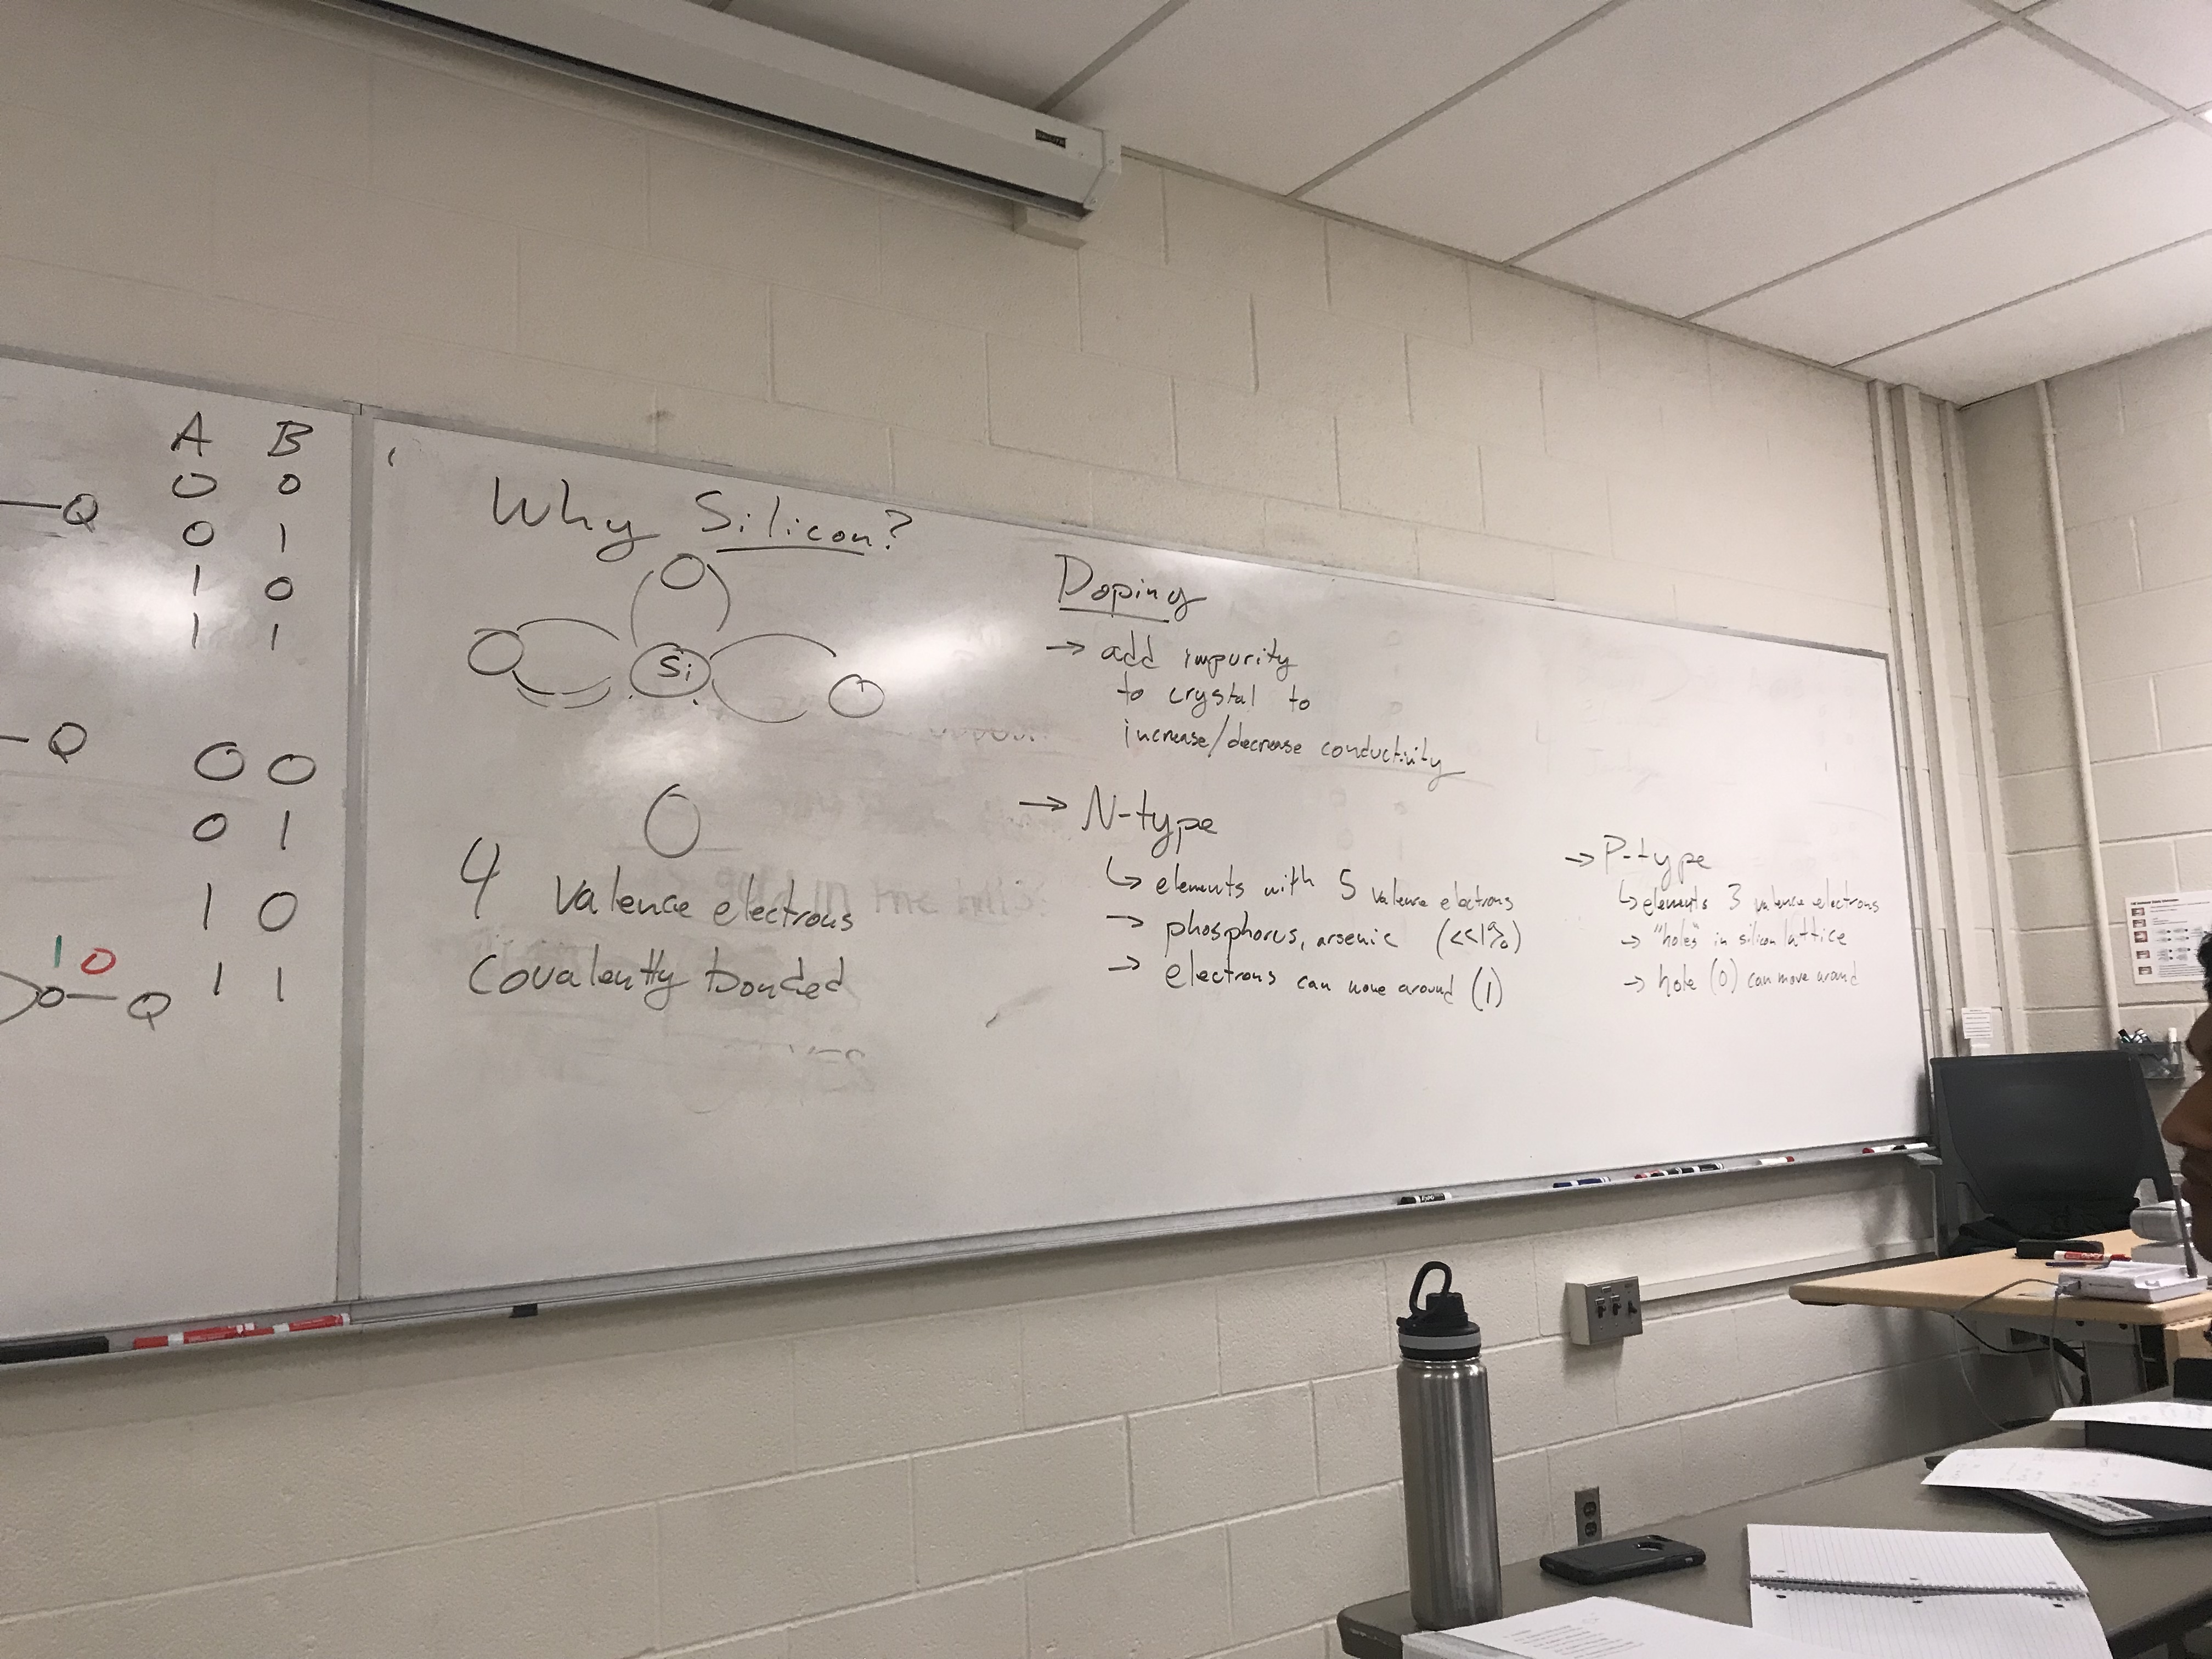 A B
0 0
Q
0 1
1 0
1 1
Q
0 0
0 1
1 0
1 0
Q
1 1
Why Silicon?
Si
4 valence electrons
Covalently bonded
Doping
→ add impurity
to crystal to
increase/decrease conductivity
→ N-type
↳ elements with 5 valence electrons
→ phosphorus, arsenic (<<1%)
→ electrons can move around (1)
→ P-type
↳ elements 3 valence electrons
→ "holes" in silicon lattice
→ hole (0) can move around